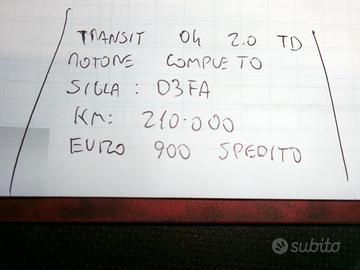 TRANSIT 04 2.0 TD
MOTORE COMPLETO
SIGLA : D3FA
KM: 210.000
EURO 900 SPEDITO
subito